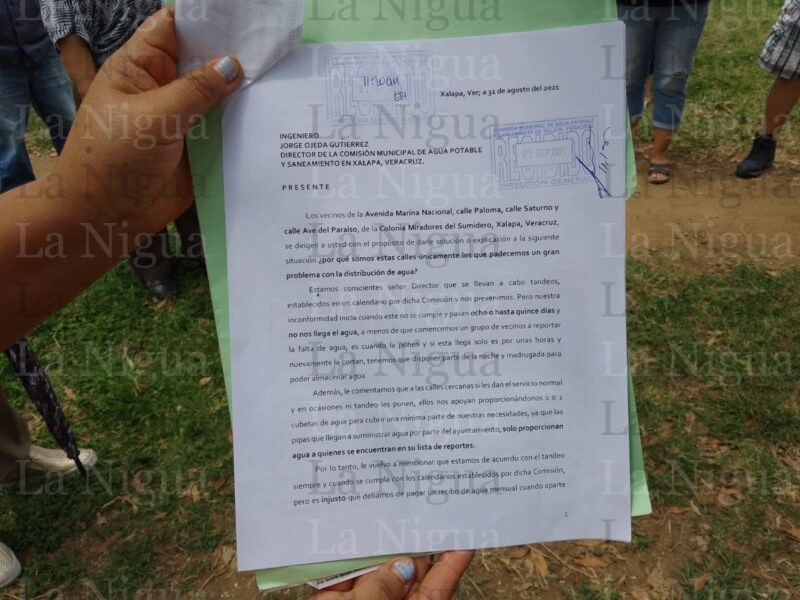 La Nigua La Nigua La Nigua
COMISIÓN MUNICIPAL DE AGUA POTABLE
SANEAMIENTO DE XALAPA, VERACRUZ
RECIBIDO
Xalapa, Ver; a 31 de agosto del 2021
COMISIÓN MUNICIPAL DE AGUA POTABLE
Y SANEAMIENTO DE XALAPA, VERACRUZ.
RECIBIDO
02 SEP 2021
DIRECCIÓN GENERAL
INGENIERO
JORGE OJEDA GUTIERREZ
DIRECTOR DE LA COMISIÓN MUNICIPAL DE AGUA POTABLE
Y SANEAMIENTO EN XALAPA, VERACRUZ.
P R E S E N T E
Los vecinos de la Avenida Marina Nacional, calle Paloma, calle Saturno y
calle Ave del Paraíso, de la Colonia Miradores del Sumidero, Xalapa, Veracruz,
se dirigen a usted con el propósito de darle solución o explicación a la siguiente
situación ¿por qué somos estas calles únicamente los que padecemos un gran
problema con la distribución de agua?
Estamos conscientes señor Director que se llevan a cabo tandeos,
establecidos en un calendario por dicha Comisión y nos prevenimos. Pero nuestra
inconformidad inicia cuando este no se cumple y pasan ocho o hasta quince días y
no nos llega el agua, a menos de que comencemos un grupo de vecinos a reportar
la falta de agua, es cuando la ponen y si esta llega solo es por unas horas y
nuevamente la cortan, tenemos que disponer parte de la noche y madrugada para
poder almacenar agua.
Además, le comentamos que a las calles cercanas si les dan el servicio normal
y en ocasiones ni tandeo les ponen, ellos nos apoyan proporcionándonos 1 o 2
cubetas de agua para cubrir una mínima parte de nuestras necesidades, ya que las
pipas que llegan a suministrar agua por parte del ayuntamiento, solo proporcionan
agua a quienes se encuentran en su lista de reportes.
Por lo tanto, le vuelvo a mencionar que estamos de acuerdo con el tandeo
siempre y cuando se cumpla con los calendarios establecidos por dicha Comisión,
pero es injusto que debamos de pagar un recibo de agua mensual cuando aparte
1